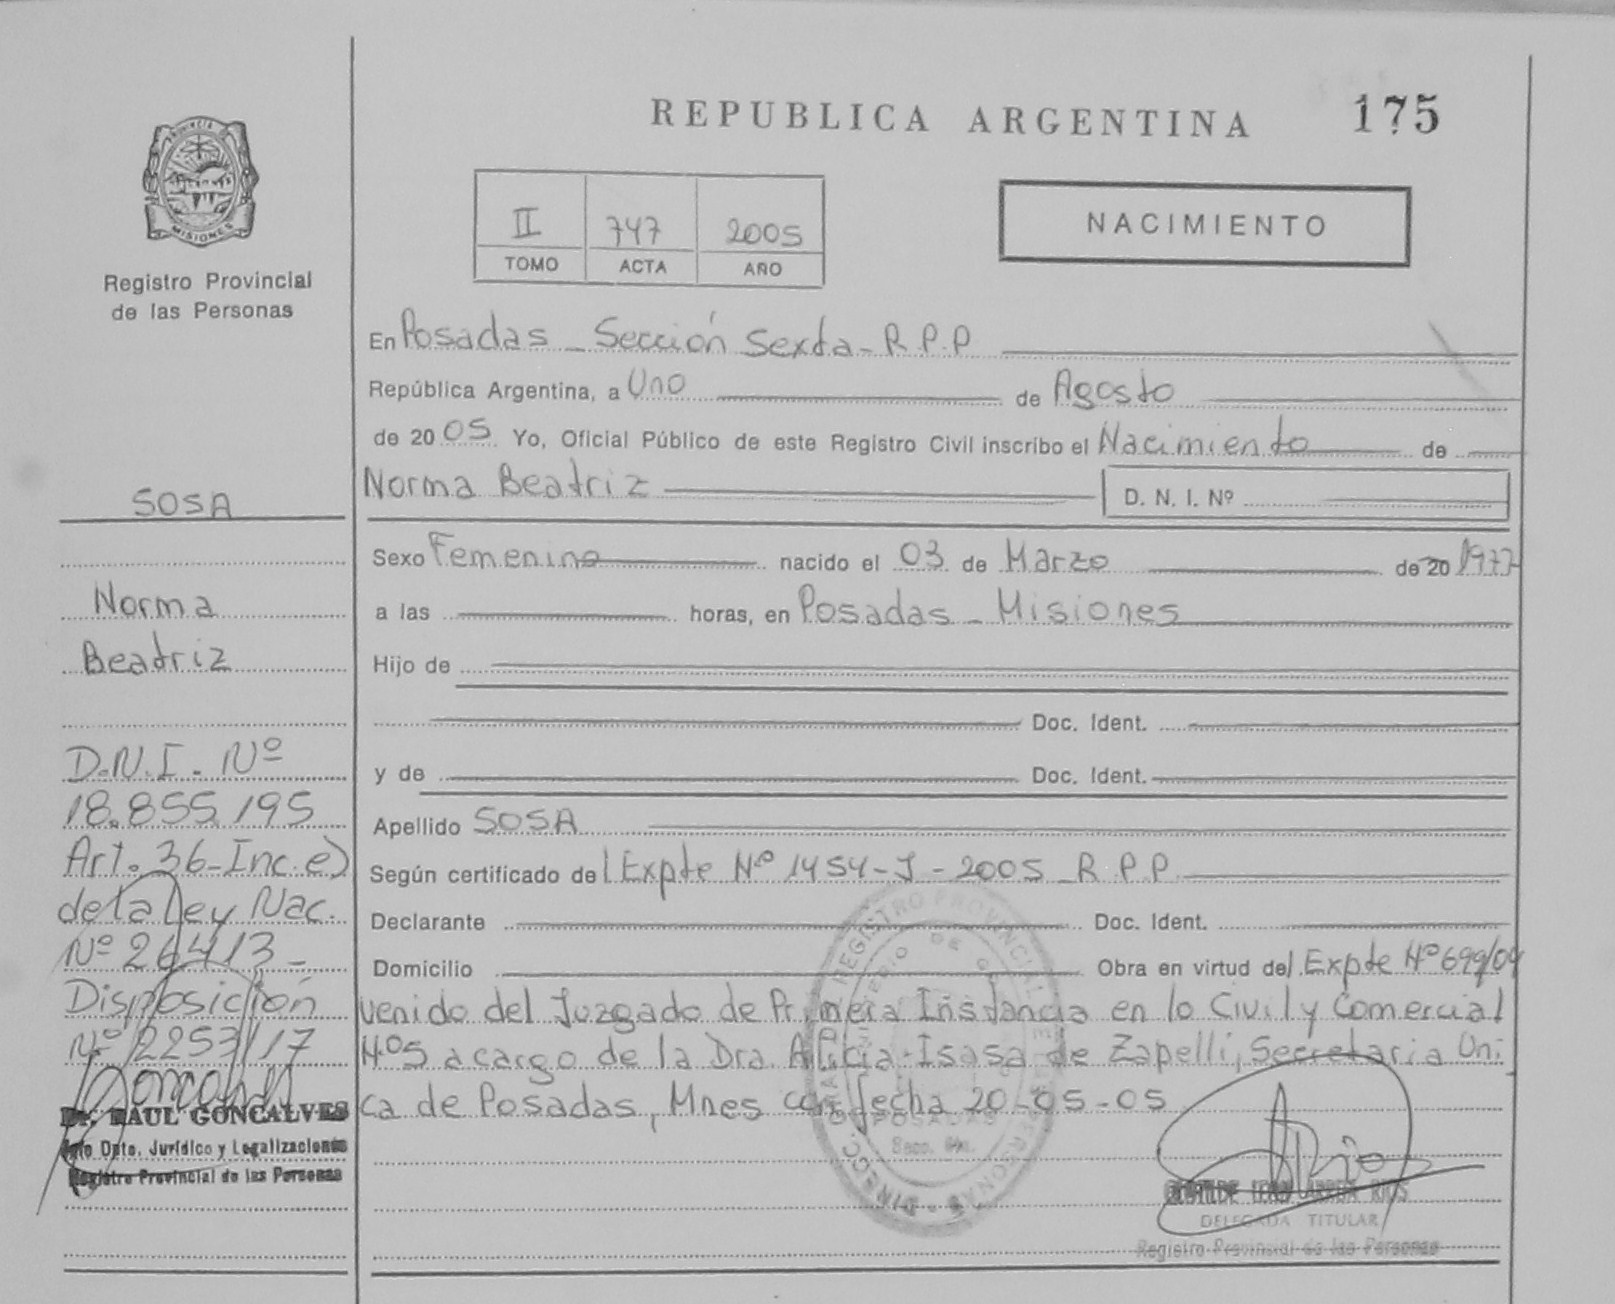 REPUBLICA ARGENTINA 175
PROVINCIA DE
MISIONES
Registro Provincial
de las Personas
II 747 2005
TOMO ACTA AÑO
NACIMIENTO
En Posadas - Sección Sexta - R.P.P
República Argentina, a Uno de Agosto
de 2005 Yo, Oficial Público de este Registro Civil inscribo el Nacimiento de
Norma Beatriz D. N. I. Nº
Sexo Femenino nacido el 03 de Marzo de 20 1977
a las horas, en Posadas - Misiones
Hijo de
Doc. Ident.
y de Doc. Ident.
Apellido SOSA
Según certificado del Expte Nº 1454-J-2005 R.P.P
Declarante Doc. Ident.
Domicilio Obra en virtud del Expte Nº 699/04
venido del Juzgado de Primera Instancia en lo Civil y Comercial
Nº5 a cargo de la Dra. Alicia Isasa de Zapelli, Secretaria Uni
ca de Posadas, Mnes con fecha 20-05-05
SOSA
Norma
Beatriz
D.N.I. Nº
18.855.195
Art. 36-Inc. e)
de la Ley Nac.
Nº 26413-
Disposición
Nº 2253/17
Dr. RAUL GONCALVES
Jefe Dpto. Jurídico y Legalizaciones
Registro Provincial de las Personas
REGISTRO PROVINCIAL DE PERSONAS
MINISTERIO DE
POSADAS
RIOS
DELEGADA TITULAR
Registro Provincial de las Personas